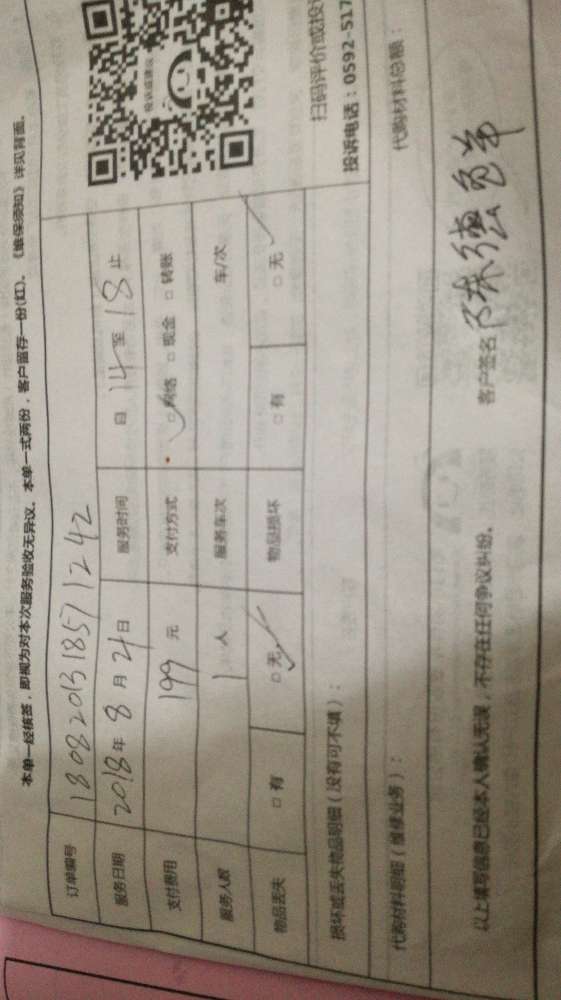 本单一经核签，即视为对本次服务验收无异议。本单一式两份，客户留存一份(红)。《维保须知》详见背面。
订单编号 1808201318571242
服务日期 2018年8月21日 服务时间 自14至18止
支付费用 199元 支付方式 □网络 □现金 □转账
服务人数 1人 服务车次 车/次
物品丢失 □有 □无 物品损坏 □有 □无
投诉或建议
扫码评价或投
投诉电话：0592-517
损坏或丢失物品明细（没有可不填）：
代购材料明细（维修业务）： 代购材料总额：
以上填写信息已经本人确认无误，不存在任何争议纠纷。 客户签名